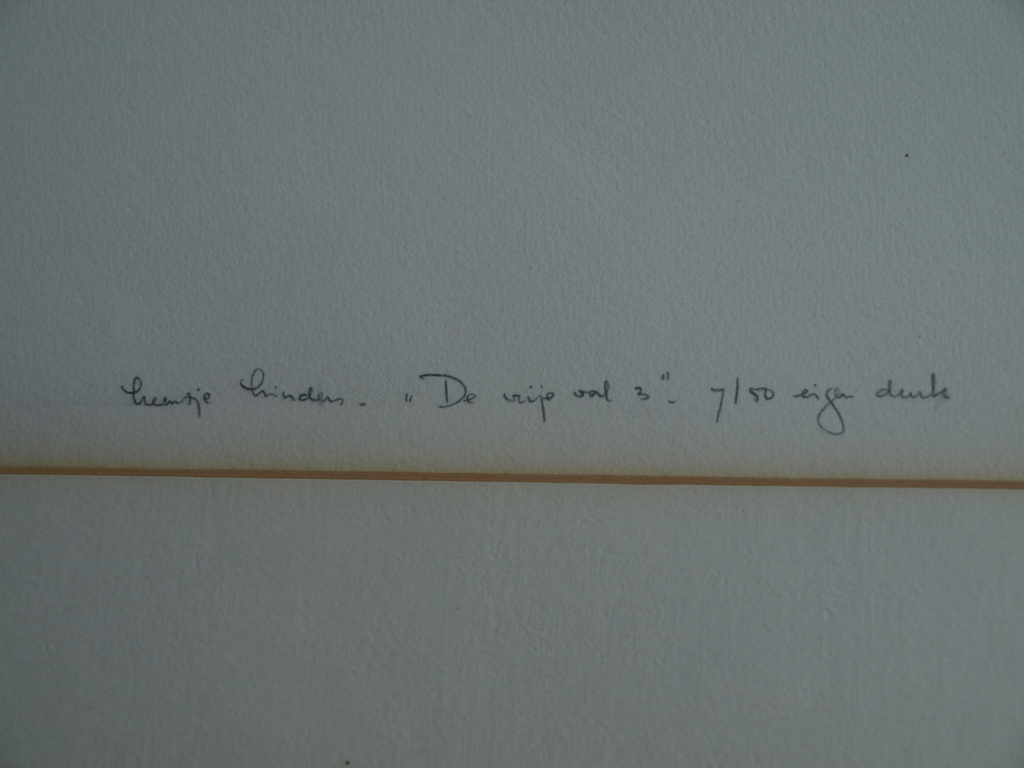 heintje hinders. "De vrije val 3". 7/50 eigen druk